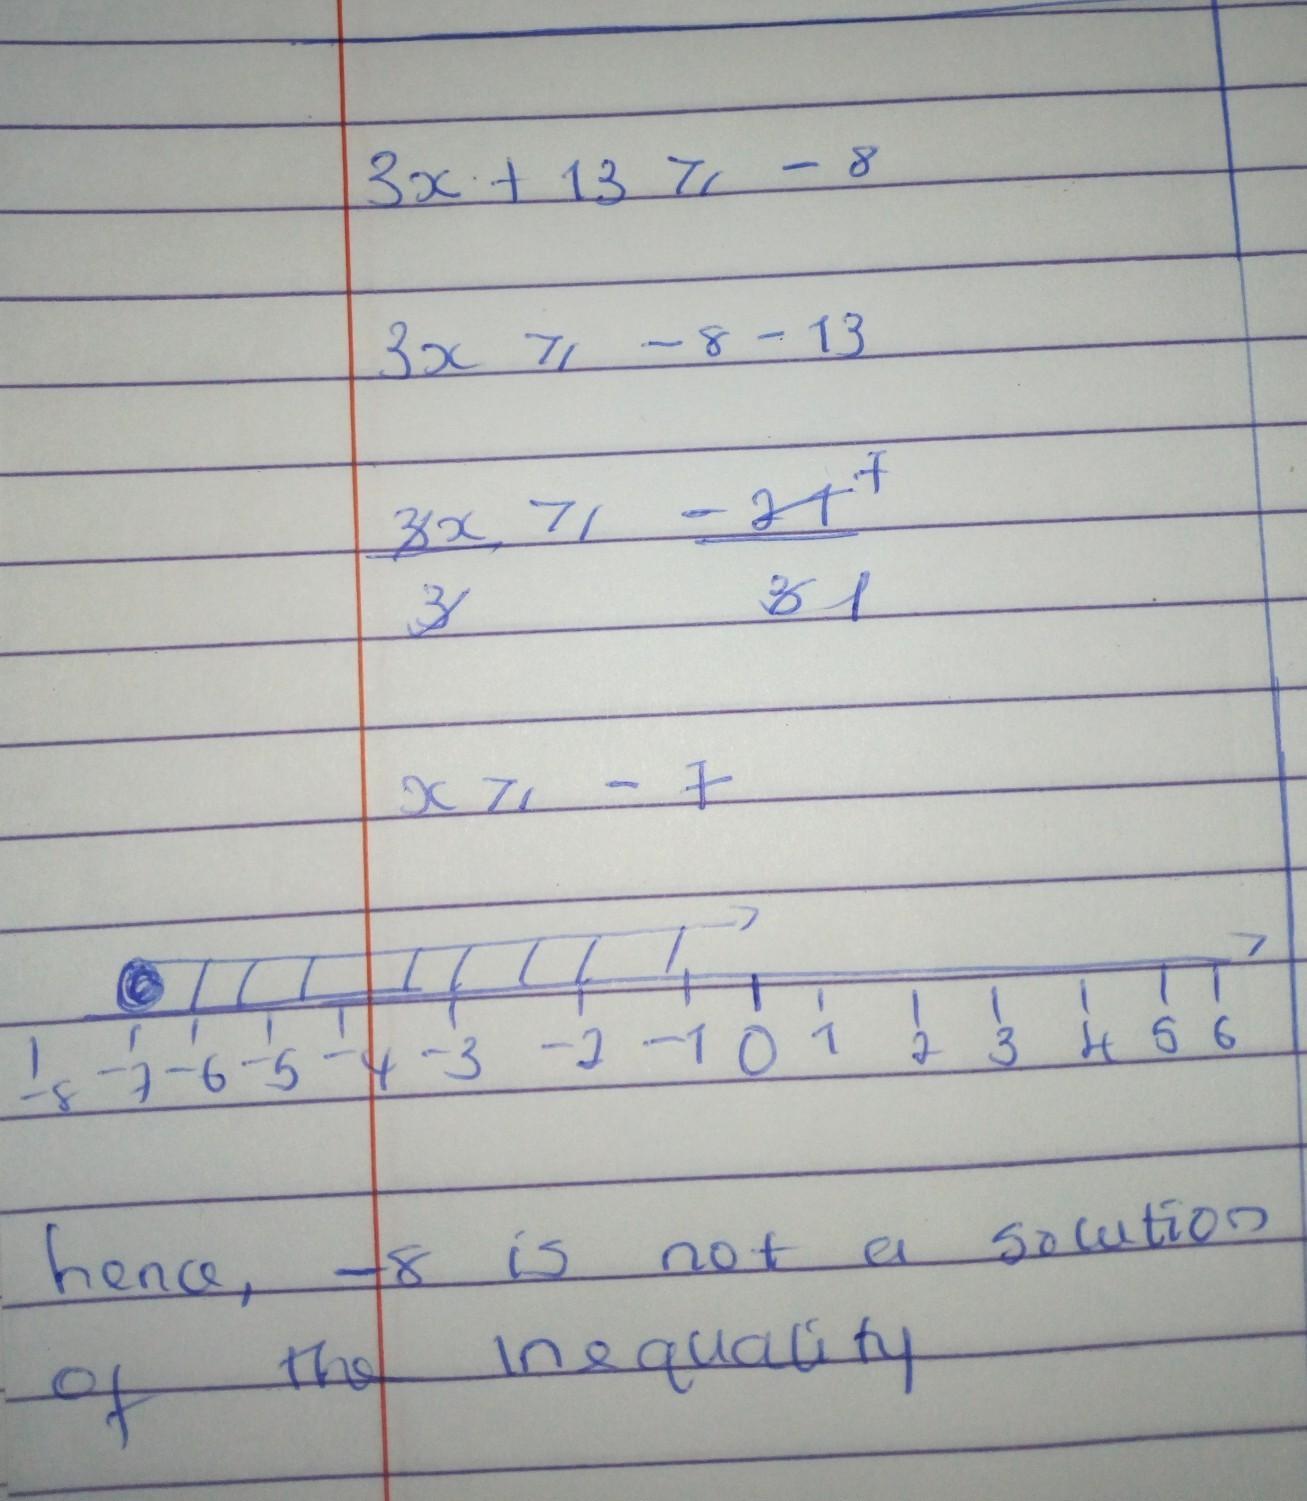 3x + 13 ⩾ - 8
3x ⩾ - 8 - 13
3x ⩾ - 21 7
3 3 1
x ⩾ - 7
-8 -7 -6 -5 -4 -3 -2 -1 0 1 2 3 4 5 6
hence, -8 is not a solution
of the inequality